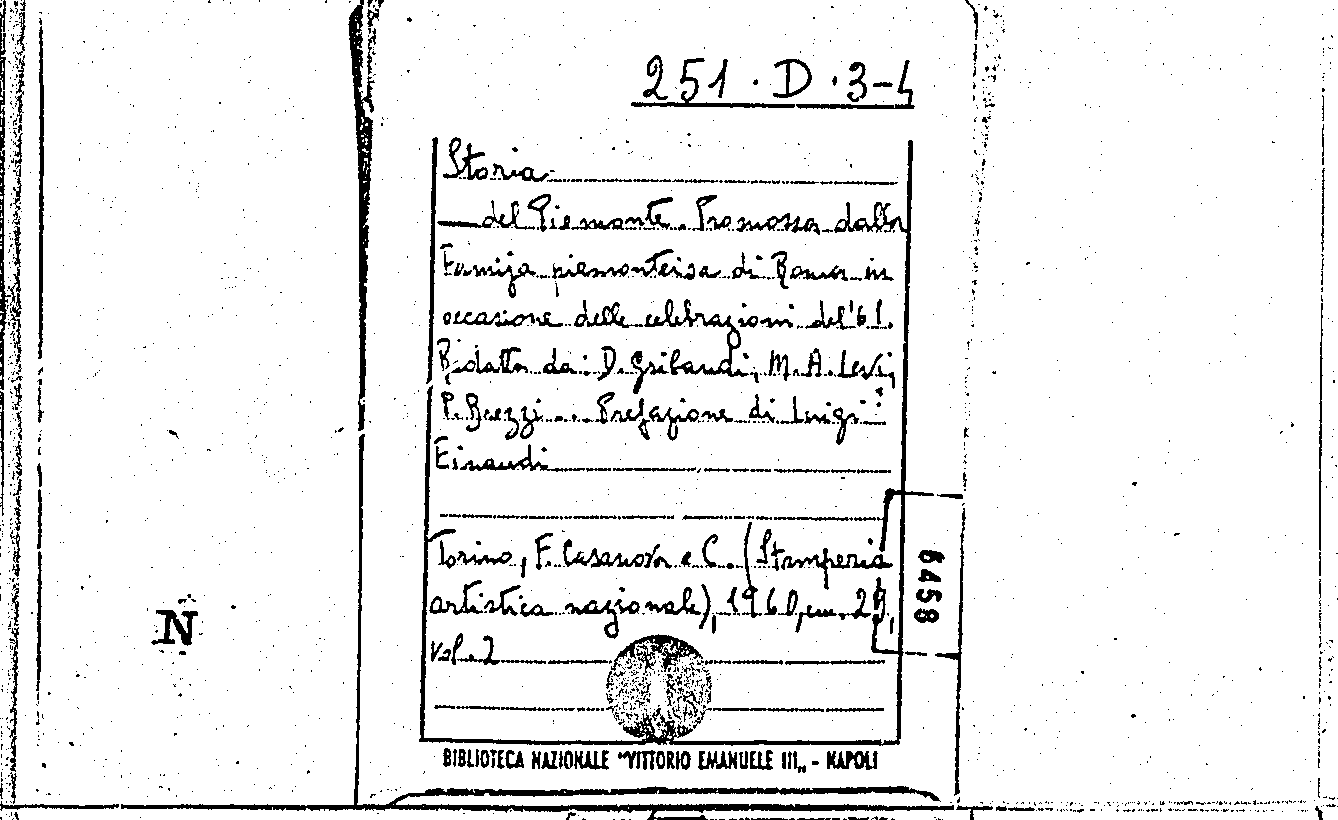 251 . D . 3-4
Storia
— del Piemonte. Promossa dalla
Famija piemonteisa di Roma in
occasione delle celebrazioni del '61.
Redatta da: D. Gribaudi, M. A. Levi,
P. Brezzi... Prefazione di Luigi
Einaudi
Torino, F. Casanova e C. (Stamperia
artistica nazionale), 1960, cm. 29,
vol. 2
6458
N
BIBLIOTECA NAZIONALE "VITTORIO EMANUELE III„ - NAPOLI